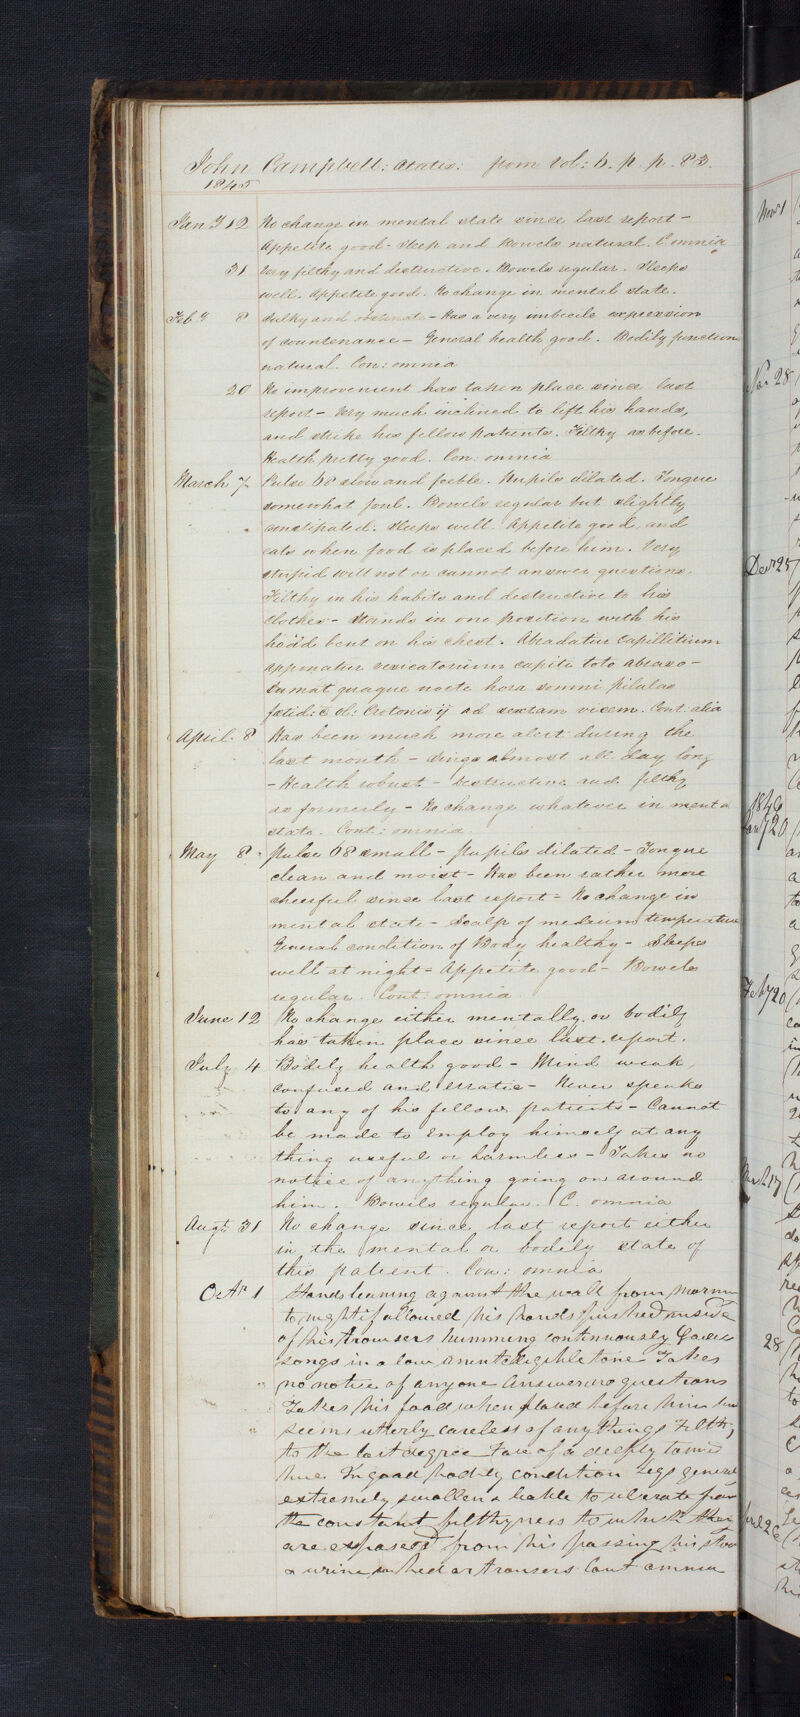 John Campbell: ætatis: from Vol: 6. p. p. 83.
1845
Jany 12 No change in mental state since last report -
Appetite good - Sleep and Bowels natural. C. omnia
31 Very filthy and destructive. Bowels regular. Sleeps
well. Appetite good. No change in mental state.
Feby 8 Sulky and obstinate - Has a very imbecile expression
of countenance - General health good. Bodily functions
natural. Con: omnia
20 No improvement has taken place since last
report - Very much inclined to lift his hands,
and strike his fellow patients. Filthy as before.
Health pretty good. Con: omnia
March 7 Pulse 68 slow and feeble. Pupils dilated. Tongue
somewhat foul. Bowels regular but slightly
constipated. Sleeps well. Appetite good, and
eats when food is placed before him. Very
stupid will not or cannot answer questions.
Filthy in his habits and destructive to his
clothes - Stands in one position with his
head bent on his chest. Abradatur Capillitium
apponatur vesicatorium capiti toto abraso -
Sumat quaque nocte hora somni pilulas
fœtid: c ol: Crotonis ij ad sextam vicem. Cont: alia
April 8 Has been much more alert during the
last month - sings almost all day long
- Health robust - destructive and filthy
as formerly - No change whatever in mental
state. Cont: omnia
May 8 Pulse 68 small - Pupils dilated - Tongue
clean and moist - Has been rather more
cheerful since last report = No change in
mental state - Scalp of medium temperature
General condition of Body healthy - Sleeps
well at night = Appetite good - Bowels
regular. Cont: omnia
June 12 No change either mentally or bodily
has taken place since last report.
July 4 Bodily health good - Mind weak,
confused and erratic - Never speaks
to any of his fellow patients - Cannot
be made to employ himself at any
thing useful or harmless - Takes no
notice of anything going on around
him. Bowels regular. C. omnia
Augt 31 No change since last report either
in the mental or bodily state of
this patient. Con: omnia
Octr 1 Stands leaning against the wall from morning
to night if allowed his hands pushed inside
of his trowsers humming continuously
songs in a low unintelligible tone Takes
no notice of anyone Answers no questions
Takes his food when placed before him but
seems utterly careless of anything Filthy
to the last degree Face of a deeply tanned
hue In good bodily condition Legs generally
extremely swollen & liable to ulcerate from
the constant filthyness to which they
are exposed from his passing his stools
& urine in bed or trousers Cont omnia
Novr 1
Nov 28
Decr 25
1846
Jany 20
Feby 20
March 17
28
April 26